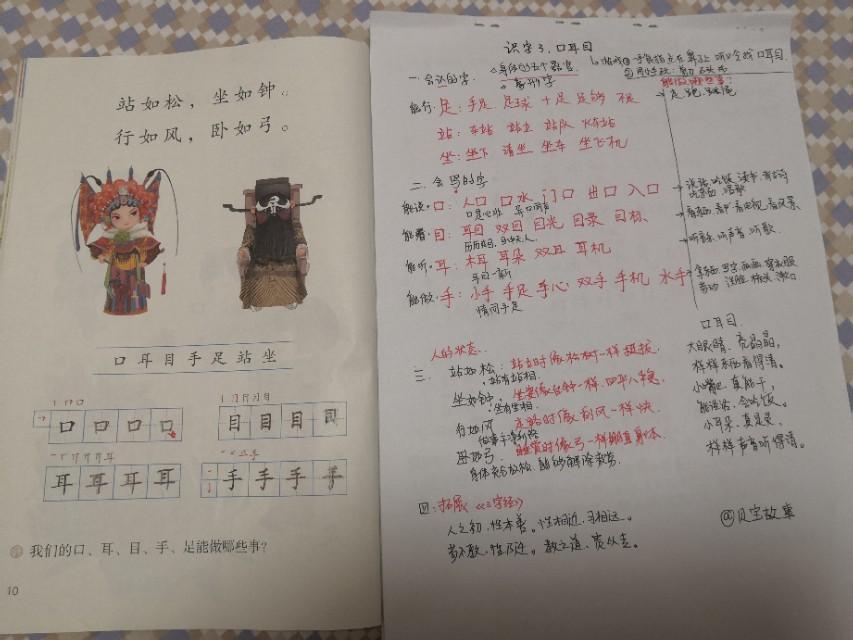 站如松，坐如钟。
行如风，卧如弓。
口 耳 目 手 足 站 坐
口 口 口 口
目 目 目 目
耳 耳 耳 耳
手 手 手 手
我们的口、耳、目、手、足能做哪些事？
10
识字3. 口耳目
一. 会认的字
能行. 足：手足 足球 十足 足够 不足
走.跑.跳.爬
站：车站 站立 站队 火车站
坐：坐下 请坐 坐车 坐飞机
二. 会写的字
能说. 口：人口 口水 门口 出口 入口
口是心非 异口同声
能看. 目：耳目 双目 目光 目录 目标
能听. 耳：木耳 耳朵 双耳 耳机
听声音. 听歌
耳目一新
能做. 手：小手 手足 手心 双手 手机 水手
情同手足
人的状态.
三. 站如松：站立时像松树一样挺拔.
站有站相.
坐如钟. 坐姿像座钟一样.四平八稳.
坐有坐相.
行如风. 走路时像刮风一样快.
卧如弓. 睡觉时像弓一样侧着身体.
身体充分放松. 能够解除疲劳.
口耳目.
大眼睛. 亮晶晶.
样样东西看得清.
小嘴巴. 真能干.
能说话. 会吃饭.
小耳朵. 真是灵.
样样声音听得清.
四. 拓展《三字经》
人之初. 性本善. 性相近. 习相远.
苟不教. 性乃迁. 教之道. 贵以专.
@贝宝故事